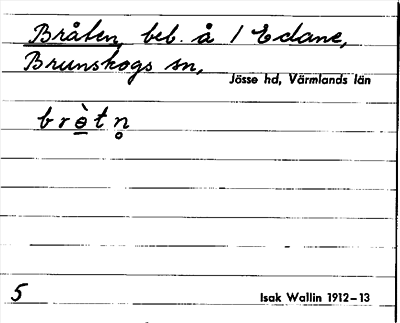 Bråten, beb. å 1 Edane,
Brunskogs sn,
Jösse hd, Värmlands län
brò̱tn̥
5
Isak Wallin 1912–13